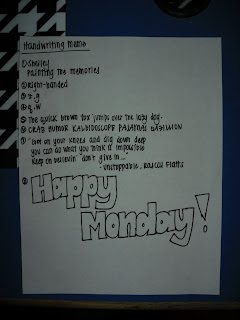 Handwriting Meme
① Shelley
Painting the memories
② Right-handed
③ z, g
④ q, w
⑤ The quick brown fox jumps over the lazy dog.
⑥ CRAB HUMOR KALEIDOSCOPE PAJAMAS
⑦ "Get on your knees and dig down deep
you can do what you think is impossible
Keep on believin' don't give in...
- Unstoppable, Rascal Flatts
⑧ Happy
Monday!